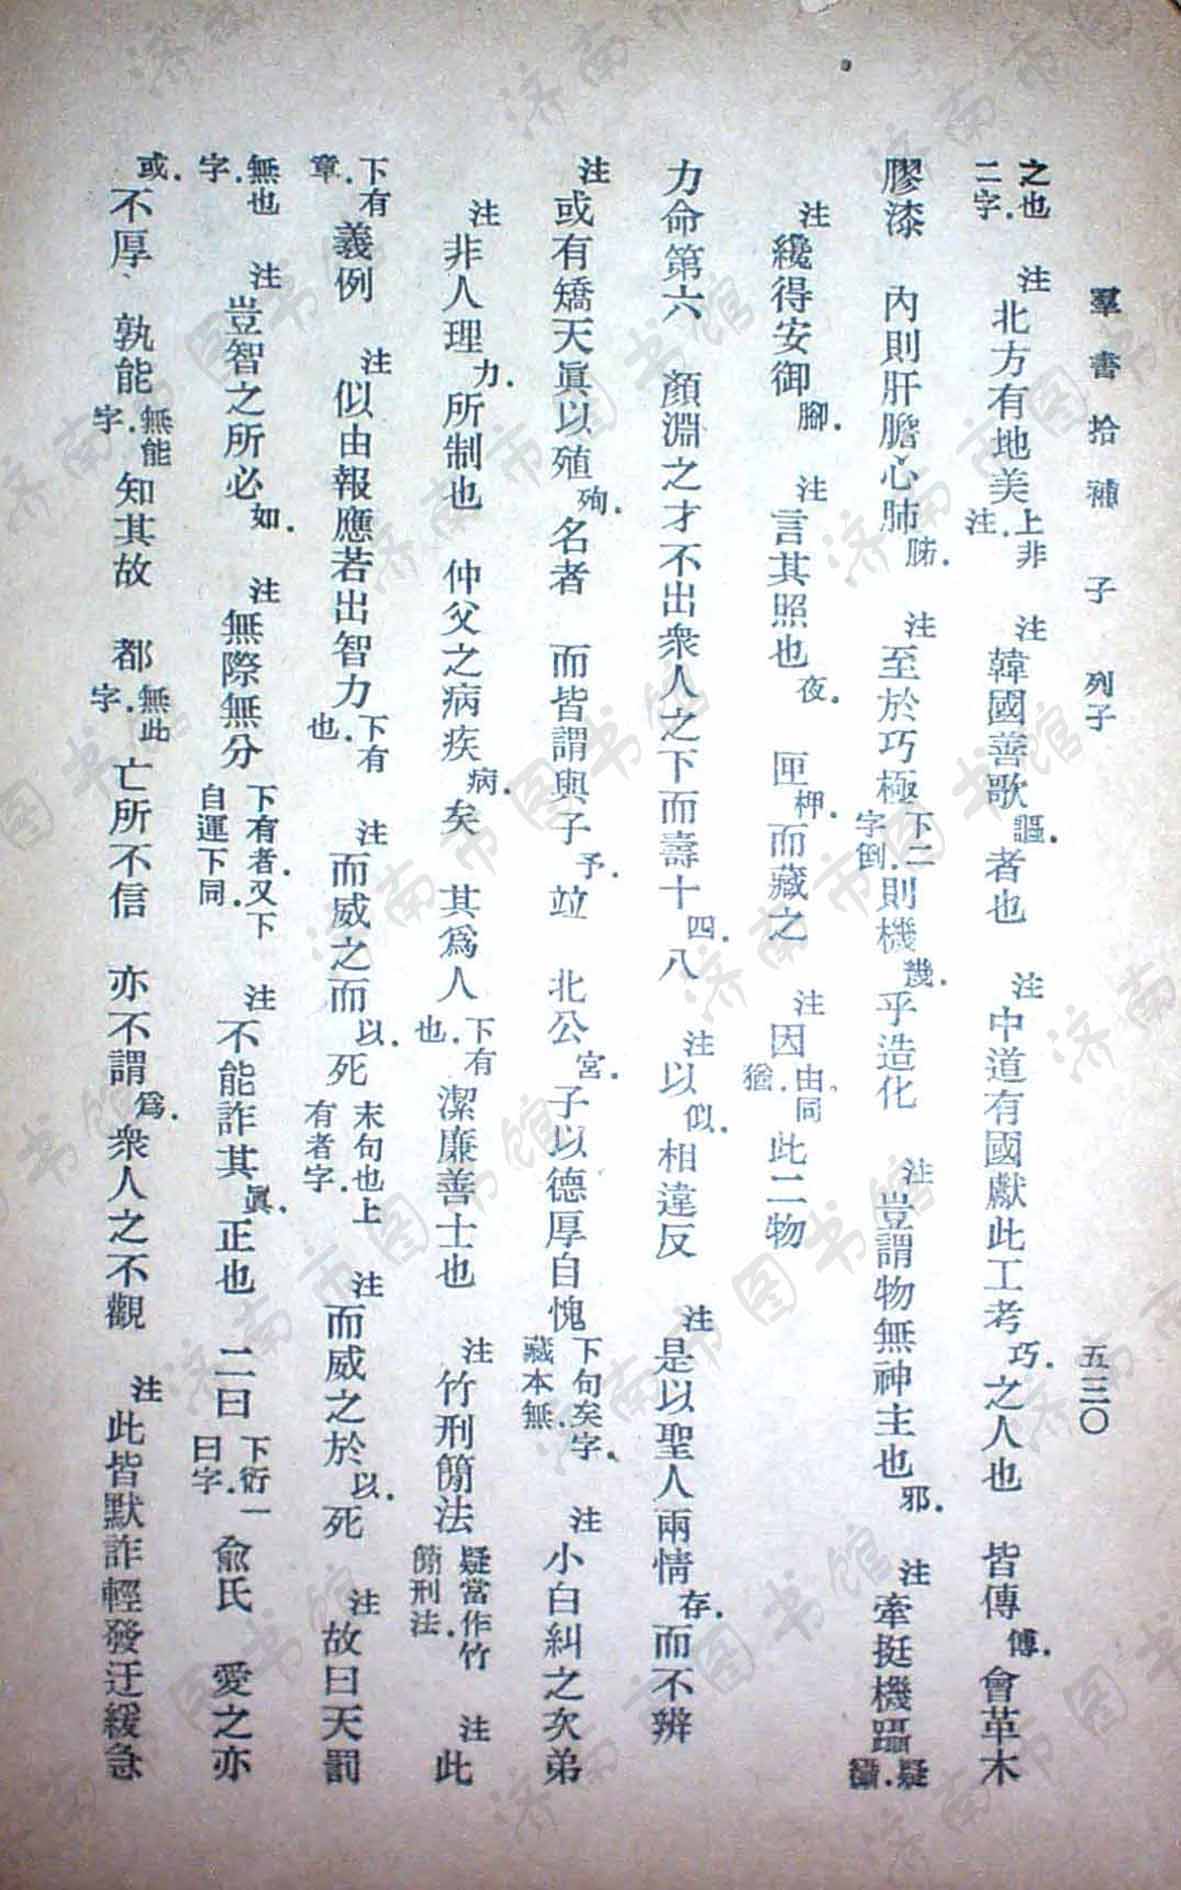 羣書拾補 子 列子 五三〇
之也二字. 注北方有地美上非注. 注韓國善歌謳.者也 注中道有國獻此工考巧.之人也 皆傳傅.會革木
膠漆 內則肝膽心肺胏. 注至於巧極下二字倒.則機幾.乎造化 注豈謂物無神主也邪. 注牽挺機躡
注纔得安御腳. 注言其照也夜. 匣柙.而藏之 注因由同猶.此二物
力命第六 顏淵之才不出衆人之下而壽十四.八 注以似.相違反 注是以聖人兩情存.而不辨
注或有矯天眞以殖殉.名者 而皆謂與子予.竝 北公宮.子以德厚自愧下句矣字.藏本無. 注小白糾之次弟
注非人理力.所制也 仲父之病疾病.矣 其爲人下有也.潔廉善士也 注竹刑簡法疑當作竹簡刑法. 注此
下有章.義例 注似由報應若出智力下有也. 注而威之而以.死末句也上有者字. 注而威之於以.死 注故曰天罰
無也字. 注豈智之所必如. 注無際無分下有者.又下自運下同. 注不能詐其眞.正也 二曰下衍一曰字.俞氏 愛之亦
或.不厚、孰能無能字.知其故 都無此字.亡所不信 亦不謂爲.衆人之不觀 注此皆默詐輕發迂緩急